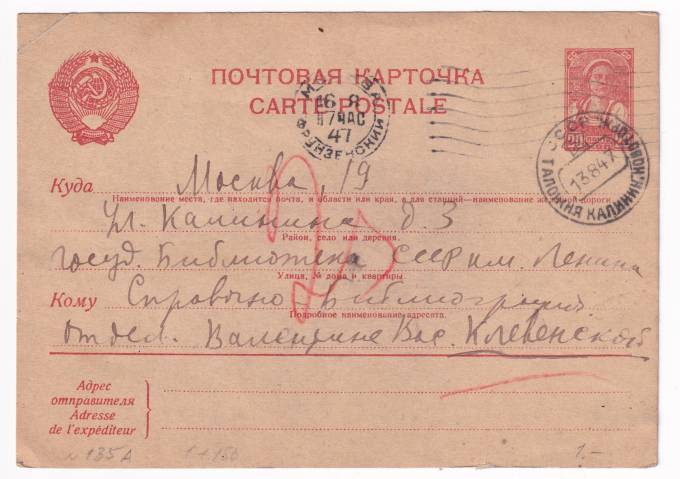 ПОЧТОВАЯ КАРТОЧКА
CARTE POSTALE
МОСКВА
16 8
17ЧАС
47
ФРУНЗЕНСКИЙ
СССР
13847
20
Куда Москва, 19
Наименование места, где находится почта, и области или края, а для станций—наименование железной дороги
ул. Калинина д. 3
Район, село или деревня.
госуд. Библиотека СССР им. Ленина
Улица, № дома и квартиры
Кому Справочно-Библиографич.
Подробное наименование адресата.
отдел. Валентине Вас. Клевенской
Адрес
отправителя
Adresse
de l'expéditeur
N 135A 1+150 1.-